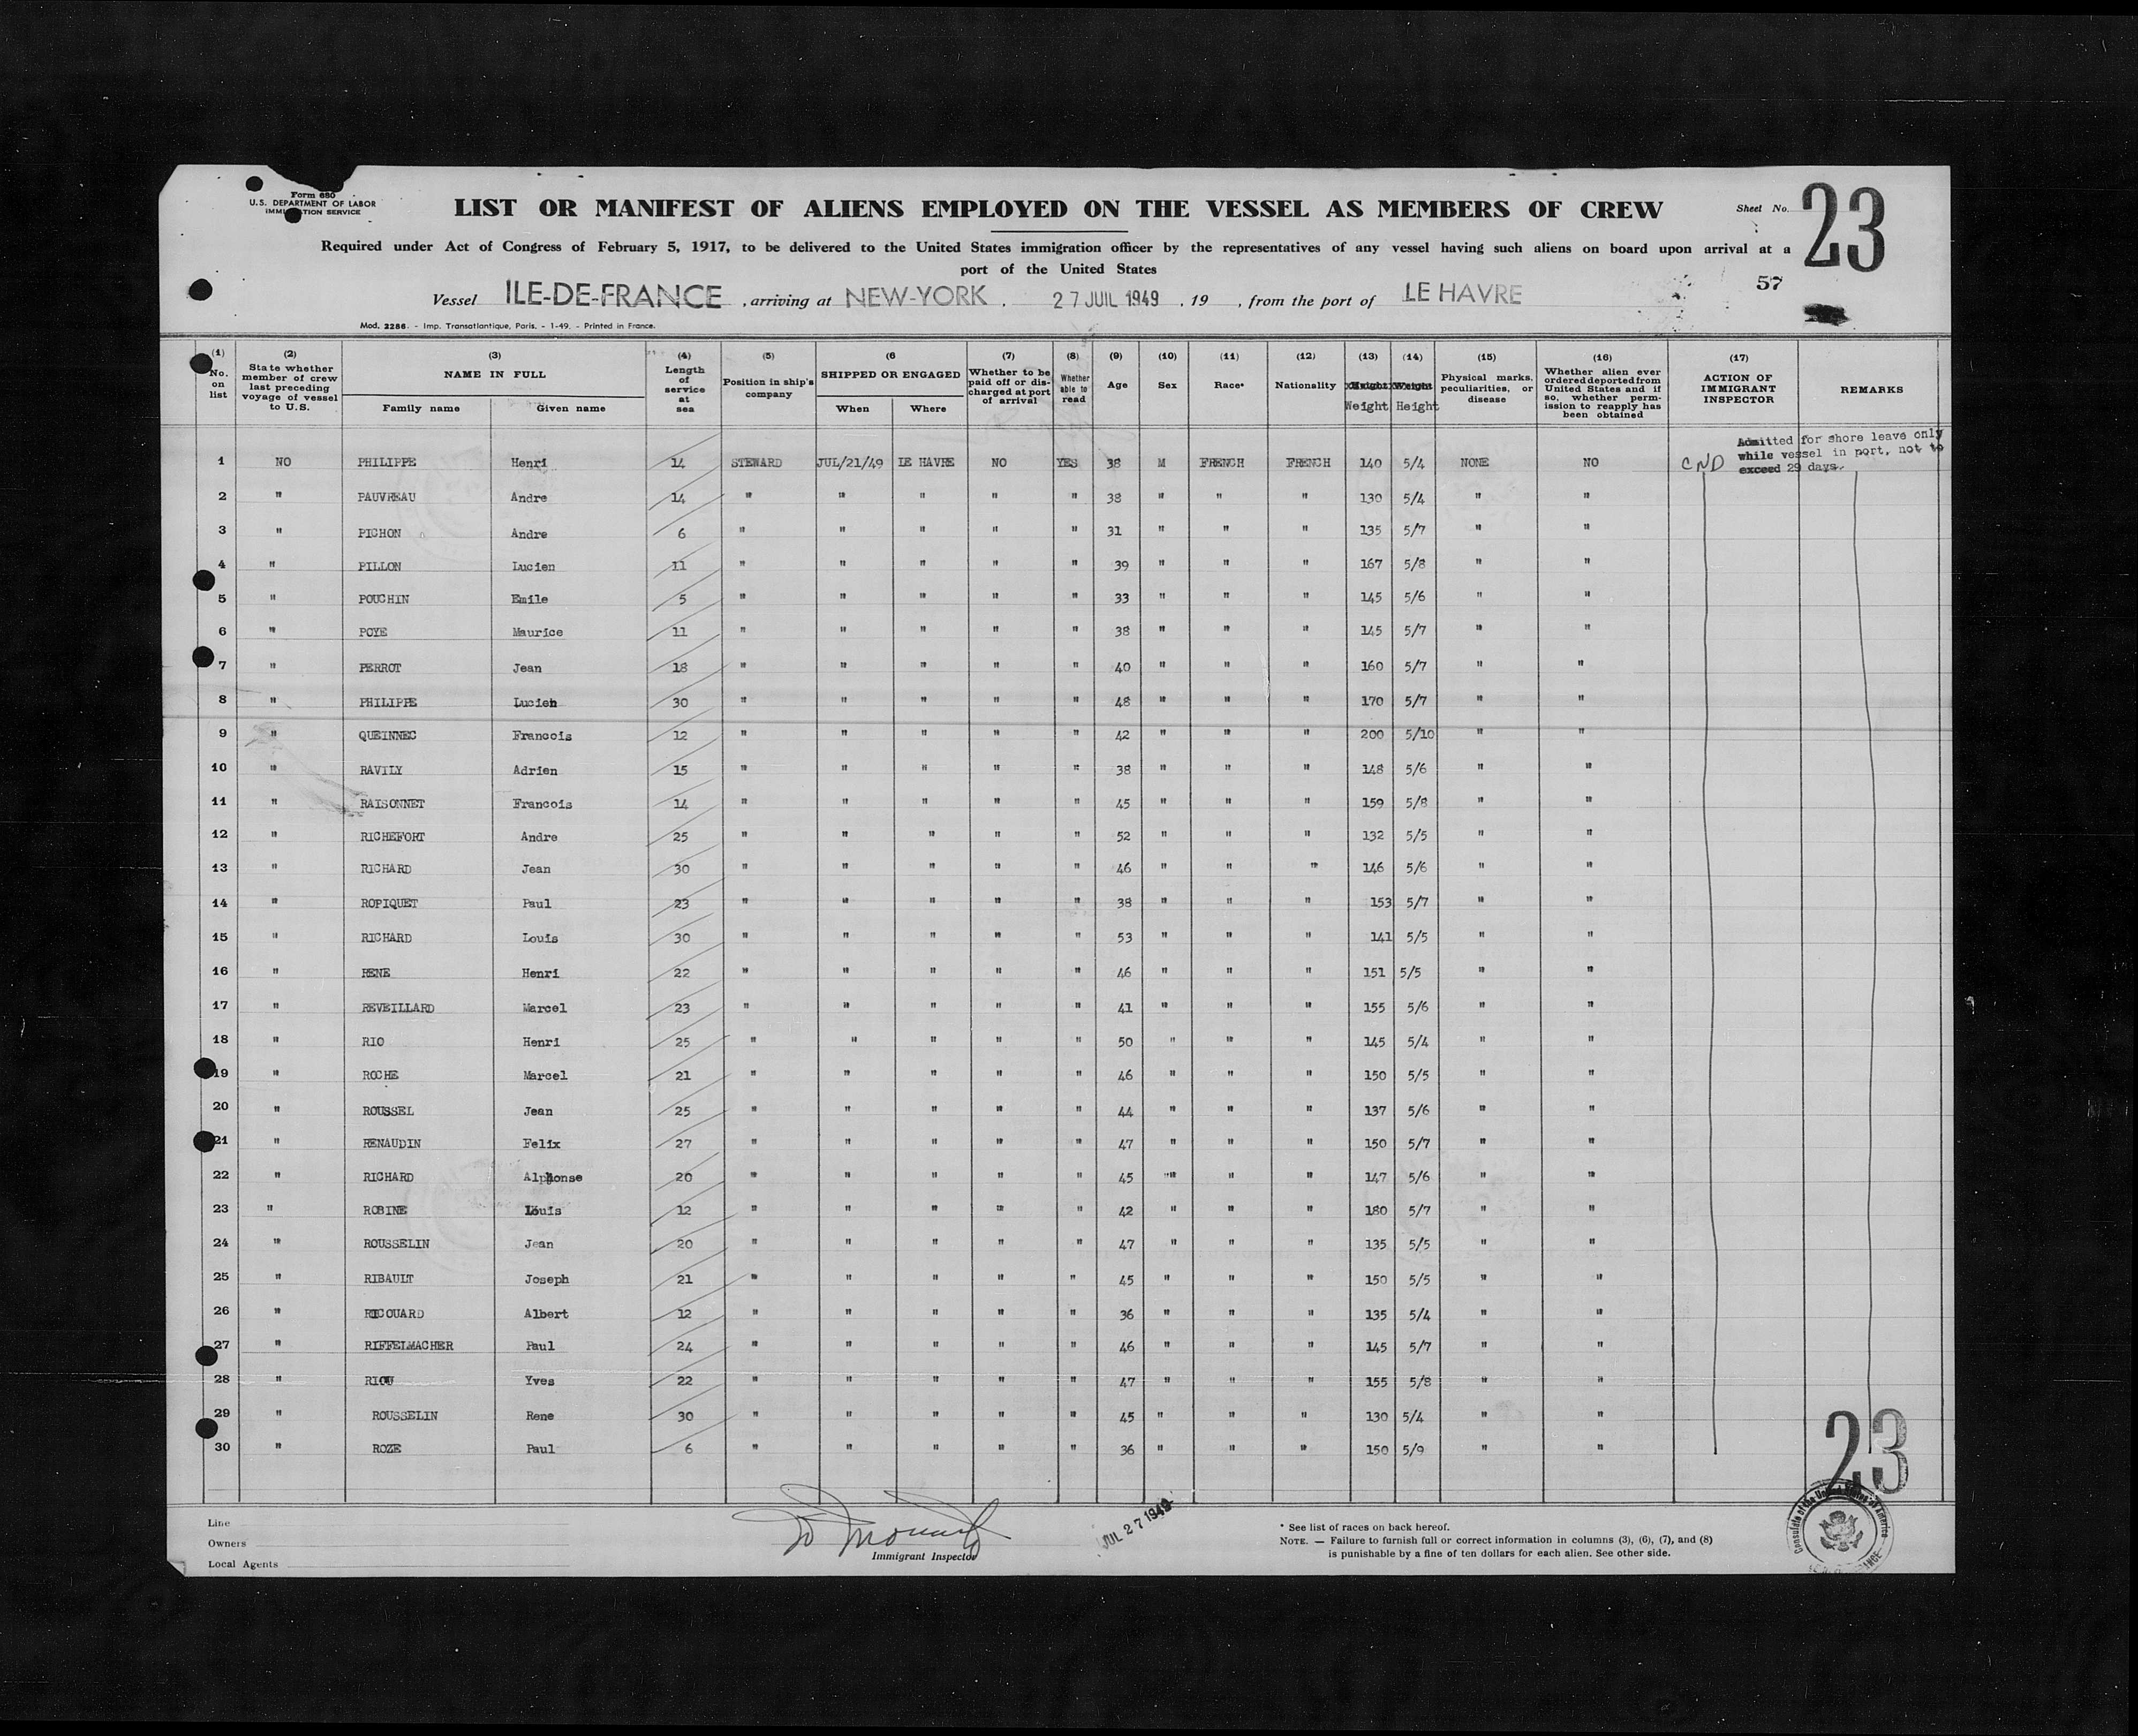 Form 680
U.S. DEPARTMENT OF LABOR
IMMIGRATION SERVICE
LIST OR MANIFEST OF ALIENS EMPLOYED ON THE VESSEL AS MEMBERS OF CREW
Sheet No. 23
Required under Act of Congress of February 5, 1917, to be delivered to the United States immigration officer by the representatives of any vessel having such aliens on board upon arrival at a
port of the United States
57
Vessel ILE-DE-FRANCE , arriving at NEW-YORK . 27 JUIL 1949 , 19 , from the port of LE HAVRE
Mod. 2286. - Imp. Transatlantique, Paris. - 1-49. - Printed in France.
(1) No. on list
(2) State whether member of crew last preceding voyage of vessel to U.S.
(3) NAME IN FULL Family name Given name
(4) Length of service at sea
(5) Position in ship's company
(6 SHIPPED OR ENGAGED When Where
(7) Whether to be paid off or dis-charged at port of arrival
(8) Whether able to read
(9) Age
(10) Sex
(11) Race*
(12) Nationality
(13) Weight
(14) Height
(15) Physical marks, peculiarities, or disease
(16) Whether alien ever ordered deported from United States and if so, whether perm-ission to reapply has been obtained
(17) ACTION OF IMMIGRANT INSPECTOR
REMARKS
Admitted for shore leave only
while vessel in port, not to
exceed 29 days.
1 NO PHILIPPE Henri 14 STEWARD JUL/21/49 LE HAVRE NO YES 38 M FRENCH FRENCH 140 5/4 NONE NO CND
2 " PAUVREAU Andre 14 " " " " " 38 " " " 130 5/4 " "
3 " PICHON Andre 6 " " " " " 31 " " " 135 5/7 " "
4 " PILLON Lucien 11 " " " " " 39 " " " 167 5/8 " "
5 " POUCHIN Emile 5 " " " " " 33 " " " 145 5/6 " "
6 " POYE Maurice 11 " " " " " 38 " " " 145 5/7 " "
7 " PERROT Jean 18 " " " " " 40 " " " 160 5/7 " "
8 " PHILIPPE Lucien 30 " " " " " 48 " " " 170 5/7 " "
9 " QUEINNEC Francois 12 " " " " " 42 " " " 200 5/10 " "
10 " RAVILY Adrien 15 " " " " " 38 " " " 148 5/6 " "
11 " RAISONNET Francois 14 " " " " " 45 " " " 159 5/8 " "
12 " RICHEFORT Andre 25 " " " " " 52 " " " 132 5/5 " "
13 " RICHARD Jean 30 " " " " " 46 " " " 146 5/6 " "
14 " ROPIQUET Paul 23 " " " " " 38 " " " 153 5/7 " "
15 " RICHARD Louis 30 " " " " " 53 " " " 141 5/5 " "
16 " RENE Henri 22 " " " " " 46 " " " 151 5/5 " "
17 " REVEILLARD Marcel 23 " " " " " 41 " " " 155 5/6 " "
18 " RIO Henri 25 " " " " " 50 " " " 145 5/4 " "
19 " ROCHE Marcel 21 " " " " " 46 " " " 150 5/5 " "
20 " ROUSSEL Jean 25 " " " " " 44 " " " 137 5/6 " "
21 " RENAUDIN Felix 27 " " " " " 47 " " " 150 5/7 " "
22 " RICHARD Alphonse 20 " " " " " 45 " " " 147 5/6 " "
23 " ROBINE Louis 12 " " " " " 42 " " " 180 5/7 " "
24 " ROUSSELIN Jean 20 " " " " " 47 " " " 135 5/5 " "
25 " RIBAULT Joseph 21 " " " " " 45 " " " 150 5/5 " "
26 " RICOUARD Albert 12 " " " " " 36 " " " 135 5/4 " "
27 " RIFFELMACHER Paul 24 " " " " " 46 " " " 145 5/7 " "
28 " RIOU Yves 22 " " " " " 47 " " " 155 5/8 " "
29 " ROUSSELIN Rene 30 " " " " " 45 " " " 130 5/4 " "
30 " ROZE Paul 6 " " " " " 36 " " " 150 5/9 " "
23
Line
Owners
Local Agents
Immigrant Inspector
JUL 27 1949
* See list of races on back hereof.
NOTE. — Failure to furnish full or correct information in columns (3), (6), (7), and (8)
is punishable by a fine of ten dollars for each alien. See other side.
Consulate of the United States of America